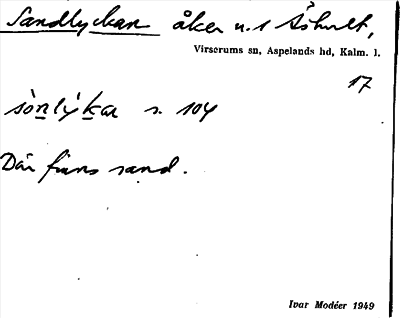 Sandlyckan åker n. 1 Åshult,
Virserums sn, Aspelands hd, Kalm. l.
17
sònlýkar s. 104
Där finns sand.
Ivar Modéer 1949